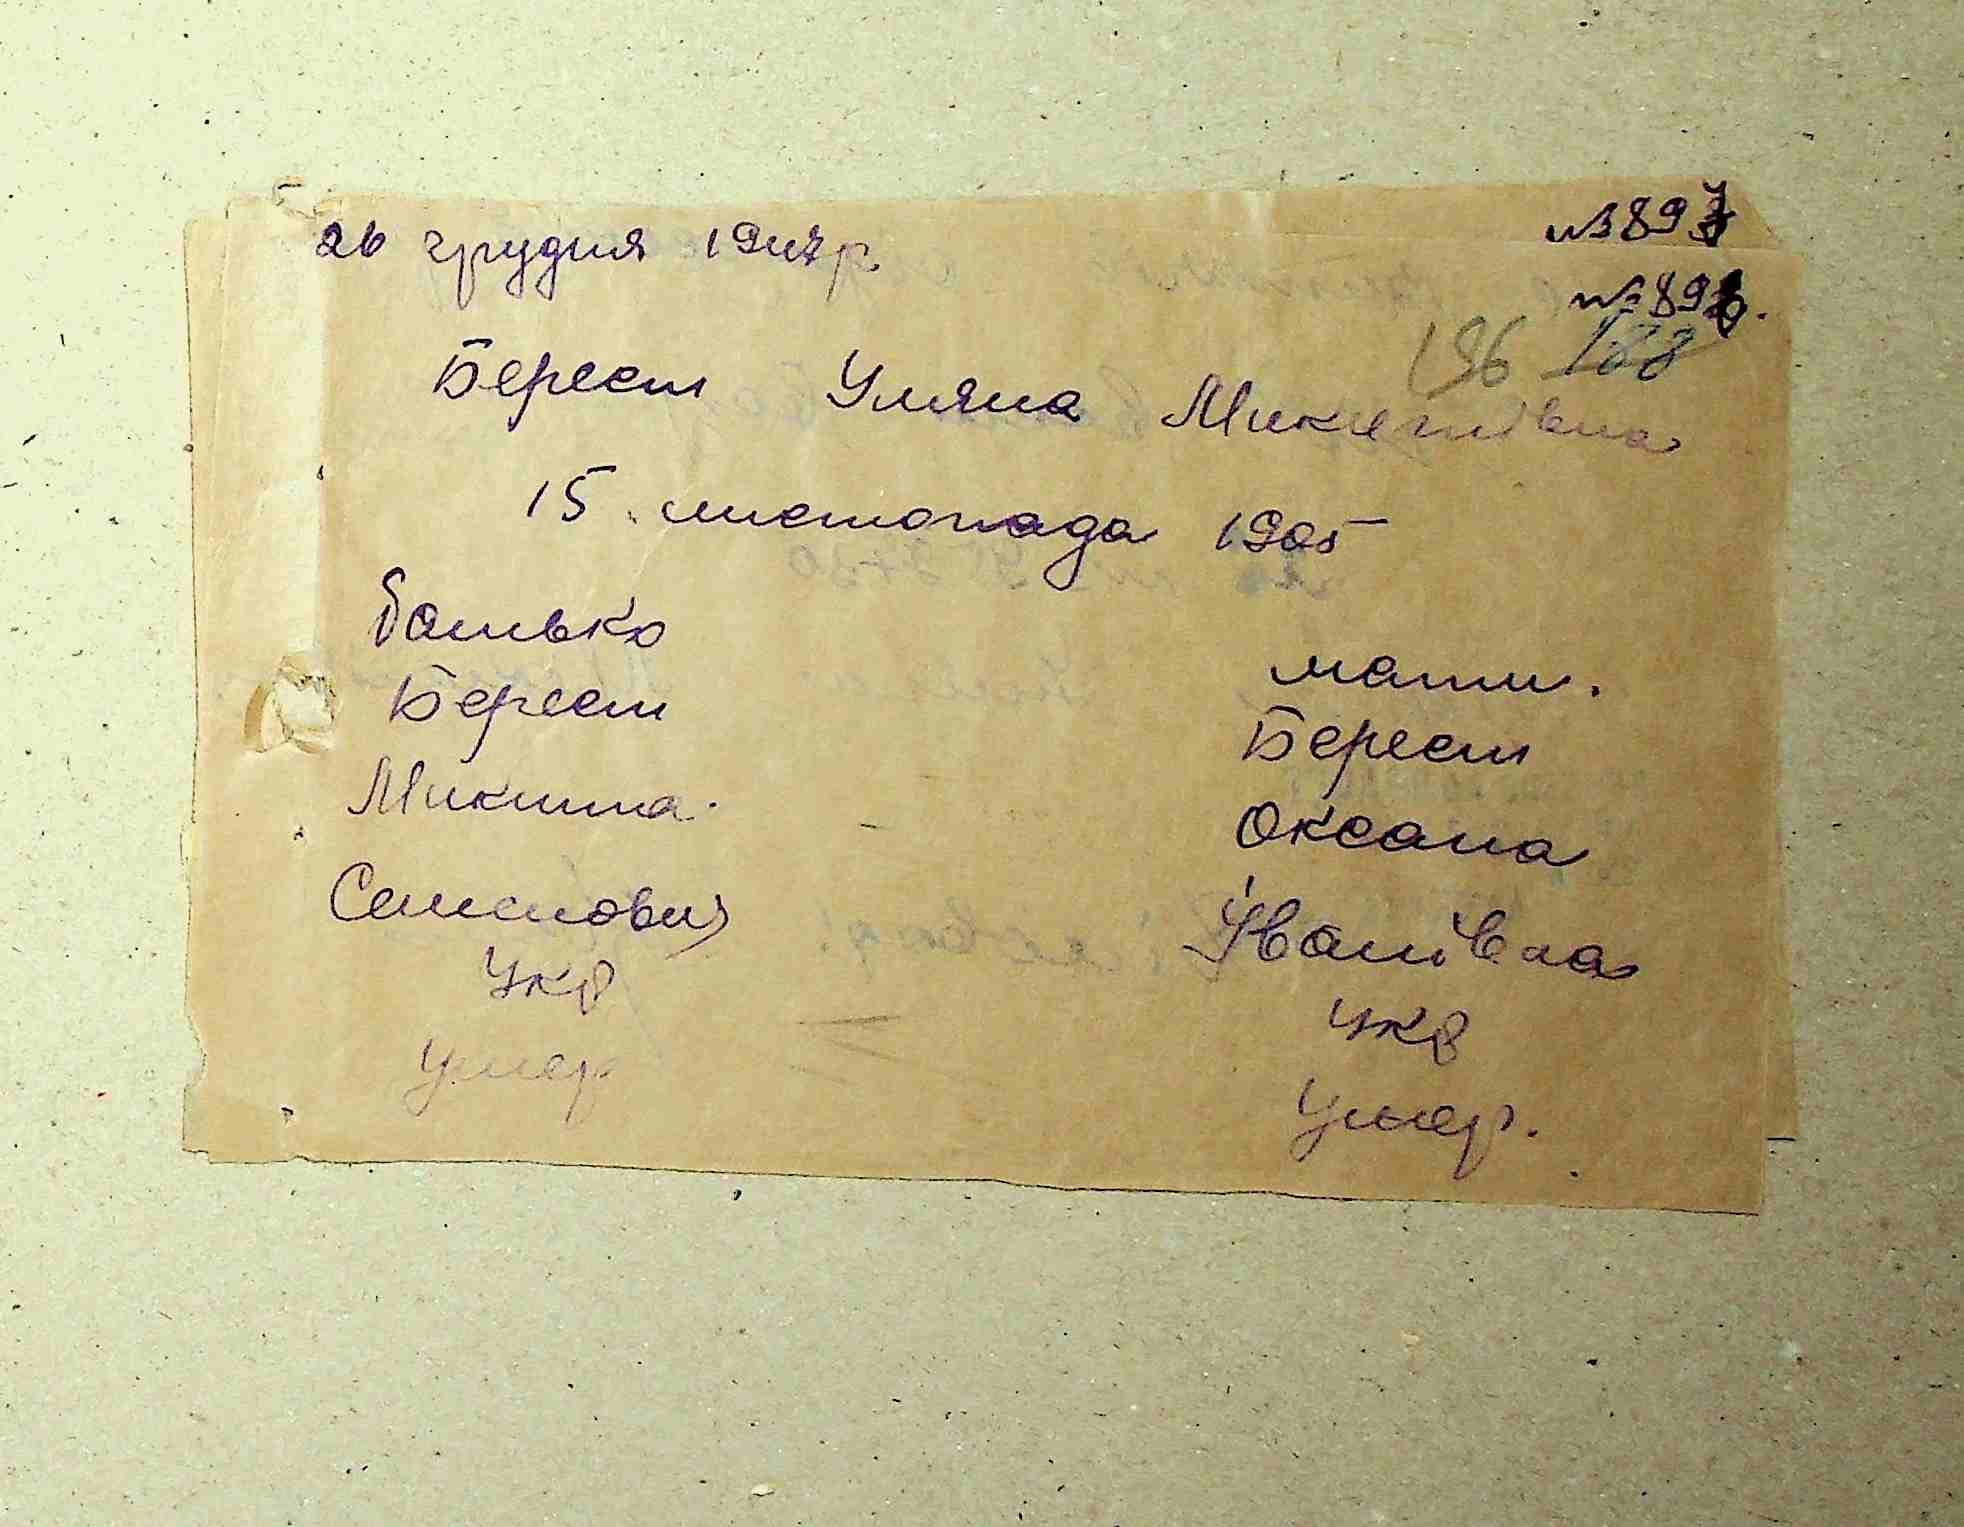 26 грудня 1947р.
№ 897
№ 896.
196 188
Берест Уляна Микитівна
15 листопада 1905
батько
мати.
Берест
Берест
Микита.
Оксана
Семенович
Іванівна
Укр
Укр
умер
умер.